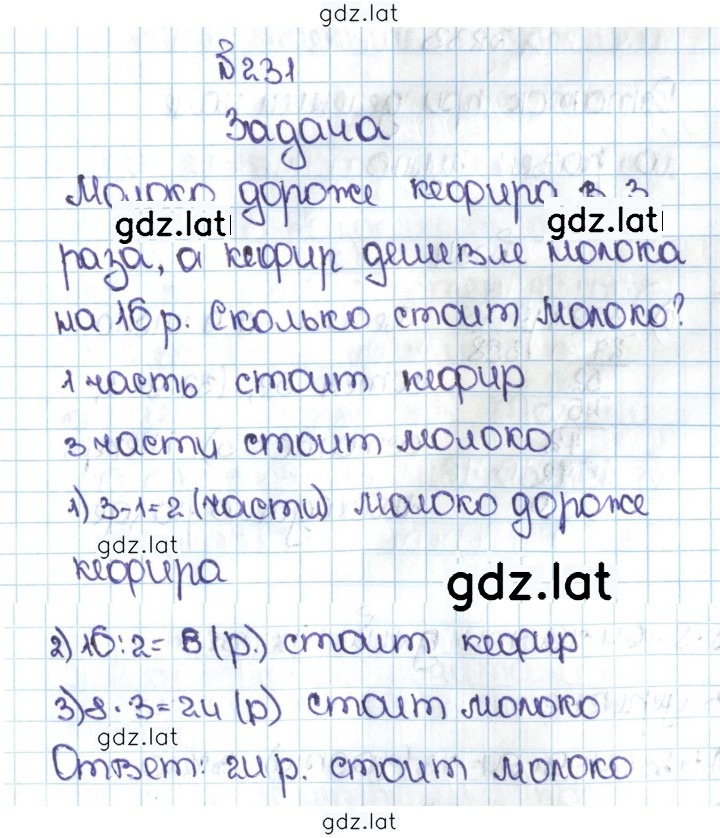 gdz.lat
№231
Задача
Молоко дороже кефира в 3
gdz.lat gdz.lat
раза, а кефир дешевле молока
на 16 р. Сколько стоит молоко?
1 часть стоит кефир
3 части стоит молоко
1) 3-1=2 (части) молоко дороже
gdz.lat
кефира
gdz.lat
2) 16:2= 8 (р.) стоит кефир
3) 8 · 3=24 (р) стоит молоко
gdz.lat
Ответ: 24 р. стоит молоко
gdz.lat